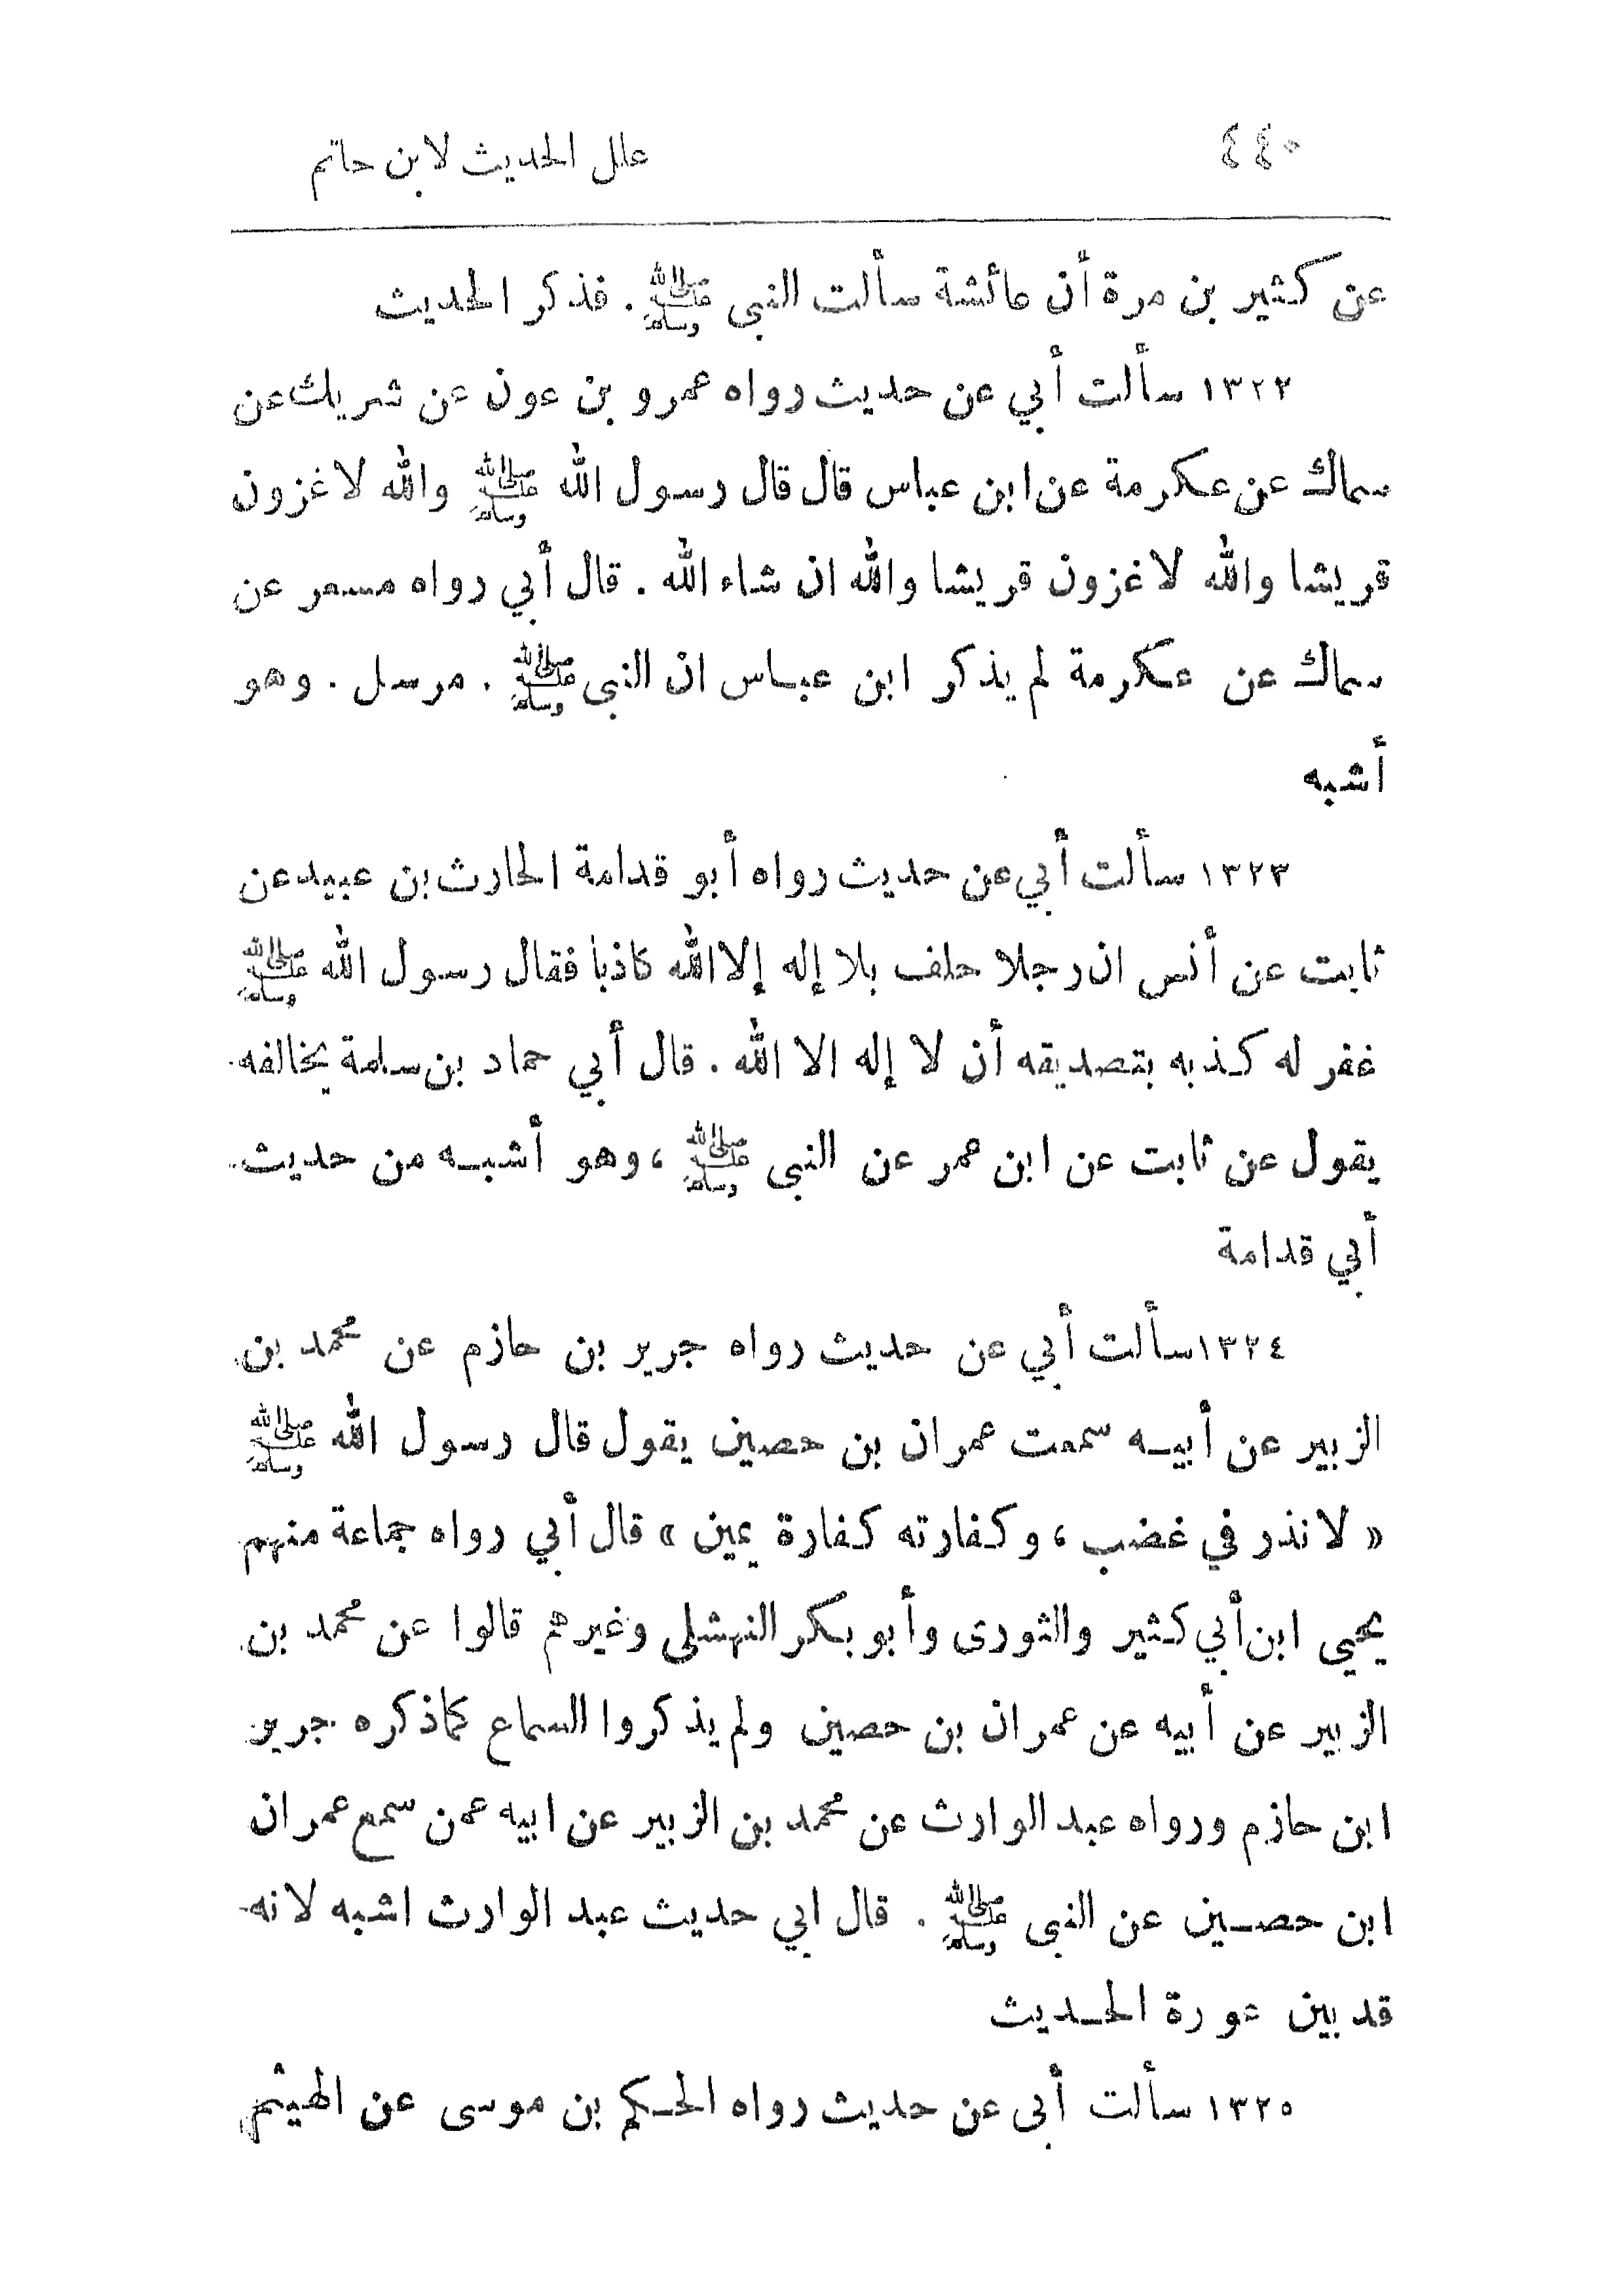 ٤٤٠
علل الحديث لابن حاتم
عن كثير بن مرة أن عائشة سألت النبى ﷺ . فذكر الحديث
١٣٢٢ سألت أبي عن حديث رواه عمرو بن عون عن شريك عن
سماك عن عكرمة عن ابن عباس قال قال رسول الله ﷺ والله لاغزون
قريشا والله لاغزون قريشا والله ان شاء الله . قال أبي رواه مسعر عن
سماك عن عكرمة لم يذكر ابن عباس ان النبى ﷺ . مرسل . وهو
أشبه
١٣٢٣ سألت أبي عن حديث رواه أبو قدامة الحارث بن عبيد عن
ثابت عن أنس ان رجلا حلف بلا إله إلا الله كاذبا فقال رسول الله ﷺ
غفر له كذبه بتصديقه أن لا إله الا الله . قال أبي حماد بن سلمة يخالفه
يقول عن ثابت عن ابن عمر عن النبى ﷺ ، وهو أشبه من حديث
أبي قدامة
١٣٢٤ سألت أبي عن حديث رواه جرير بن حازم عن محمد بن
الزبير عن أبيه سمعت عمران بن حصين يقول قال رسول الله ﷺ
« لا نذر في غضب ، وكفارته كفارة يمين » قال أبي رواه جماعة منهم
يحيى ابن أبي كثير والثورى وأبو بكر النهشلى وغيرهم قالوا عن محمد بن
الزبير عن أبيه عن عمران بن حصين ولم يذكروا السماع كما ذكره جرير
ابن حازم ورواه عبد الوارث عن محمد بن الزبير عن ابيه عمن سمع عمران
ابن حصين عن النبى ﷺ . قال ابي حديث عبد الوارث اشبه لانه
قد بين عورة الحديث
١٣٢٥ سألت أبى عن حديث رواه الحكم بن موسى عن الهيثم